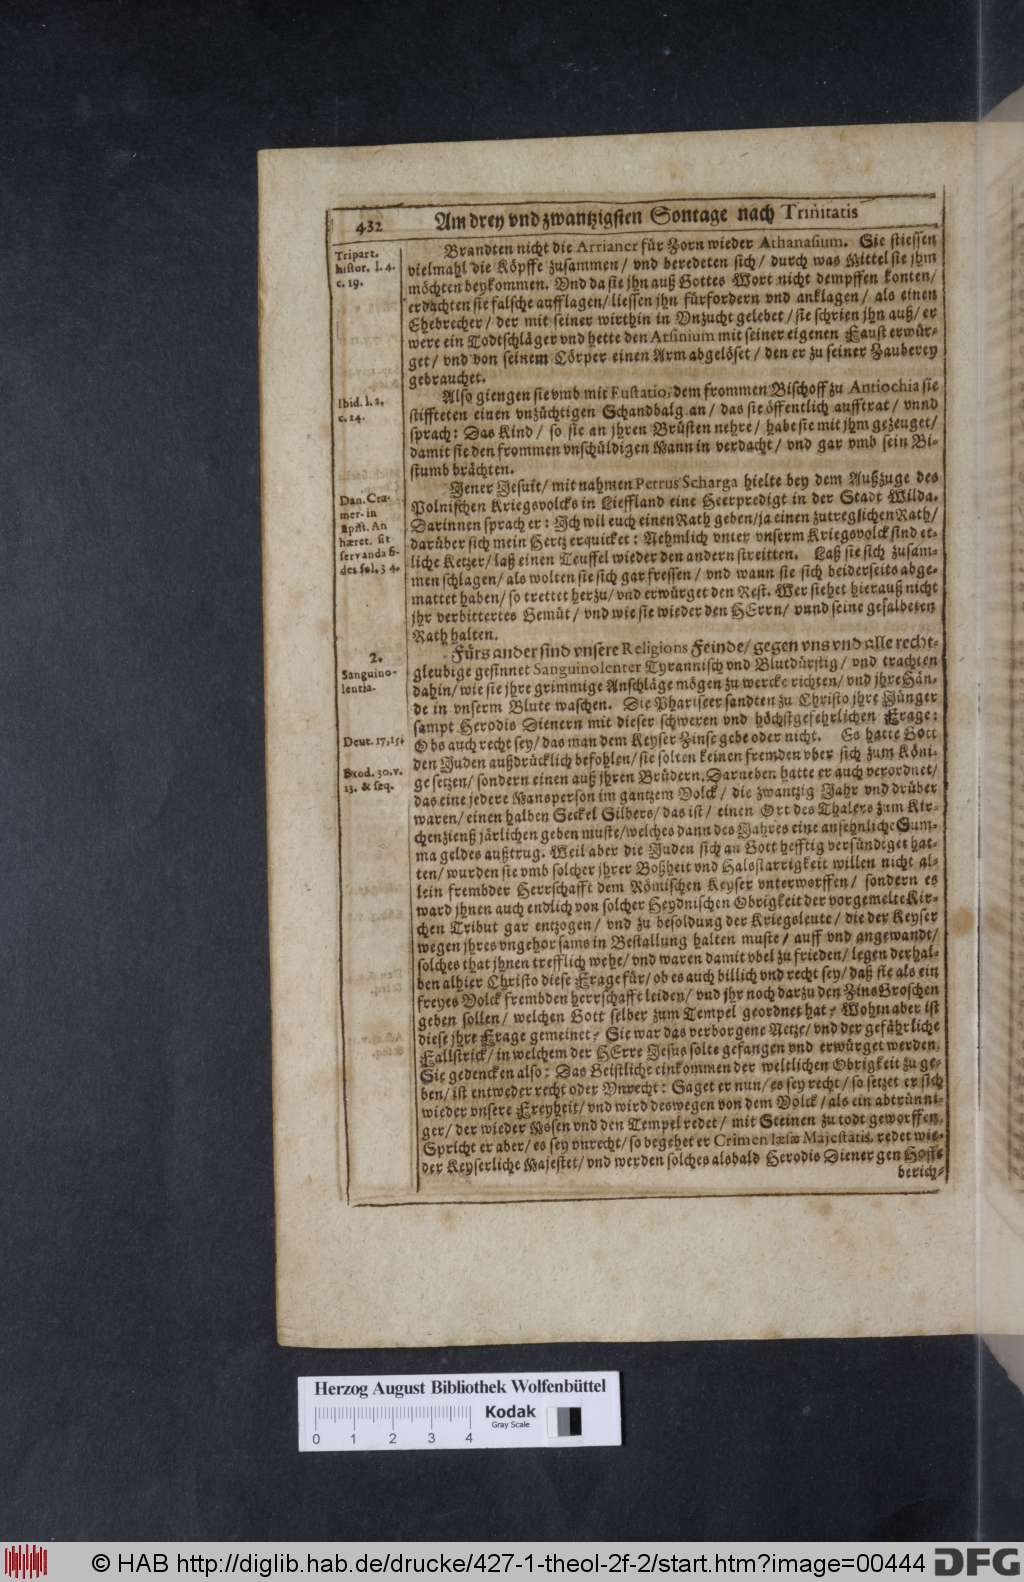 432
Am drey vnd zwantzigsten Sontage nach Trin̄itatis
Tripart.
histor. l. 4.
c. 19.
Brandten nicht die Arrianer für Zorn wieder Athanasium. Sie stiessen
vielmahl die Köpffe zusammen/ vnd beredeten sich/ durch was Mittel sie jhm
möchten beykommen. Vnd da sie jhn auß Gottes Wort nicht dempffen konten/
erdachten sie falsche aufflagen/ liessen jhn fürfordern vnd anklagen/ als einen
Ehebrecher/ der mit seiner wirthin in Vnzucht gelebet/ sie schrien jhn auß/ er
were ein Todtschläger vnd hette den Arsinium mit seiner eigenen Faust erwür-
get/ vnd von seinem Cörper einen Arm abgelöset/ den er zu seiner Zauberey
gebrauchet.
Ibid. l. 2.
c. 24.
Also giengen sie vmb mit Eustatio, dem frommen Bischoff zu Antiochia sie
stiffteten einen vnzüchtigen Schandbalg an/ das sie öffentlich aufftrat/ vnnd
sprach: Das Kind/ so sie an jhren Brüsten nehre/ habe sie mit jhm gezeuget/
damit sie den frommen vnschüldigen Mann in verdacht/ vnd gar vmb sein Bi-
stumb brächten.
Dan. Cra-
mer. in
Apost. An
hæret. sit
servanda fi-
des fol. 34.
Jener Jesuit/ mit nahmen Petrus Scharga hielte bey dem Außzuge des
Polnischen Kriegsvolcks in Lieffland eine Heerpredigt in der Stadt Wilda.
Darinnen sprach er: Ich wil euch einen Rath geben/ ja einen zutreglichen Rath/
darüber sich mein Hertz erquicket: Nehmlich vnter vnserm Kriegsvolck sind et-
liche Ketzer/ laß einen Teuffel wieder den andern streitten. Laß sie sich zusam-
men schlagen/ als wolten sie sich gar fressen/ vnd wann sie sich beiderseits abge-
mattet haben/ so trettet herzu/ vnd erwürget den Rest. Wer siehet hierauß nicht
jhr verbittertes Gemüt/ vnd wie sie wieder den HErrn/ vnnd seine gesalbeten
Rath halten.
2.
Sanguino-
lentia.
Fürs ander sind vnsere Religions Feinde/ gegen vns vnd alle recht-
gleubige gesinnet Sanguinolenter Tyrannisch vnd Blutdürstig/ vnd trachten
dahin/ wie sie jhre grimmige Anschläge mögen zu wercke richten/ vnd jhre Hän-
de in vnserm Blute waschen. Die Phariseer sandten zu Christo jhre Jünger
sampt Herodis Dienern mit dieser schweren vnd höchstgefehrlichen Frage:
Deut. 17, 15.
Obs auch recht sey/ das man dem Keyser Zinse gebe oder nicht. Es hatte Gott
den Juden außdrücklich befohlen/ sie solten keinen fremden vber sich zum Köni-
Exod. 30. v.
13. & seq.
ge setzen/ sondern einen auß jhren Brüdern. Darneben hatte er auch verordnet/
das eine jedere Mansperson im gantzem Volck/ die zwantzig Jahr vnd drüber
waren/ einen halben Seckel Silbers/ das ist/ einen Ort des Thalers zum Kir-
chenzienß järlichen geben muste/ welches dann des Jahres eine ansehnliche Sum-
ma geldes außtrug. Weil aber die Juden sich an Gott hefftig versündiget hat-
ten/ wurden sie vmb solcher jhrer Boßheit vnd Halsstarrigkeit willen nicht al-
lein frembder Herrschafft dem Römischen Keyser vnterworffen/ sondern es
ward jhnen auch endlich von solcher Heydnischen Obrigkeit der vorgemelte Kir-
chen Tribut gar entzogen/ vnd zu besoldung der Kriegsleute/ die der Keyser
wegen jhres vngehorsams in Bestallung halten muste/ auff vnd angewandt/
solches that jhnen trefflich wehe/ vnd waren damit vbel zu frieden/ legen derhal-
ben alhier Christo diese Frage für/ ob es auch billich vnd recht sey/ daß sie als ein
freyes Volck frembden herrschafft leiden/ vnd jhr noch darzu den ZinsGroschen
geben sollen/ welchen Gott selber zum Tempel geordnet hat? Wohin aber ist
diese jhre Frage gemeinet? Sie war das verborgene Netze/ vnd der gefährliche
Fallstrick/ in welchem der HErre Jesus solte gefangen vnd erwürget werden.
Sie gedencken also: Das Geistliche einkommen der weltlichen Obrigkeit zu ge-
ben/ ist entweder recht oder Vnrecht: Saget er nun/ es sey recht/ so setzet er sich
wieder vnsere Freyheit/ vnd wird deswegen von dem Volck/ als ein abtrünni-
ger/ der wieder Mosen vnd den Tempel redet/ mit Steinen zu todt geworffen.
Spricht er aber/ es sey vnrecht/ so begehet er Crimen læsæ Majestatis, redet wie-
der Keyserliche Majestet/ vnd werden solches alsbald Herodis Diener gen Hoffe
berich-
Herzog August Bibliothek Wolfenbüttel
Kodak
Gray Scale
0 1 2 3 4
© HAB http://diglib.hab.de/drucke/427-1-theol-2f-2/start.htm?image=00444
DFG